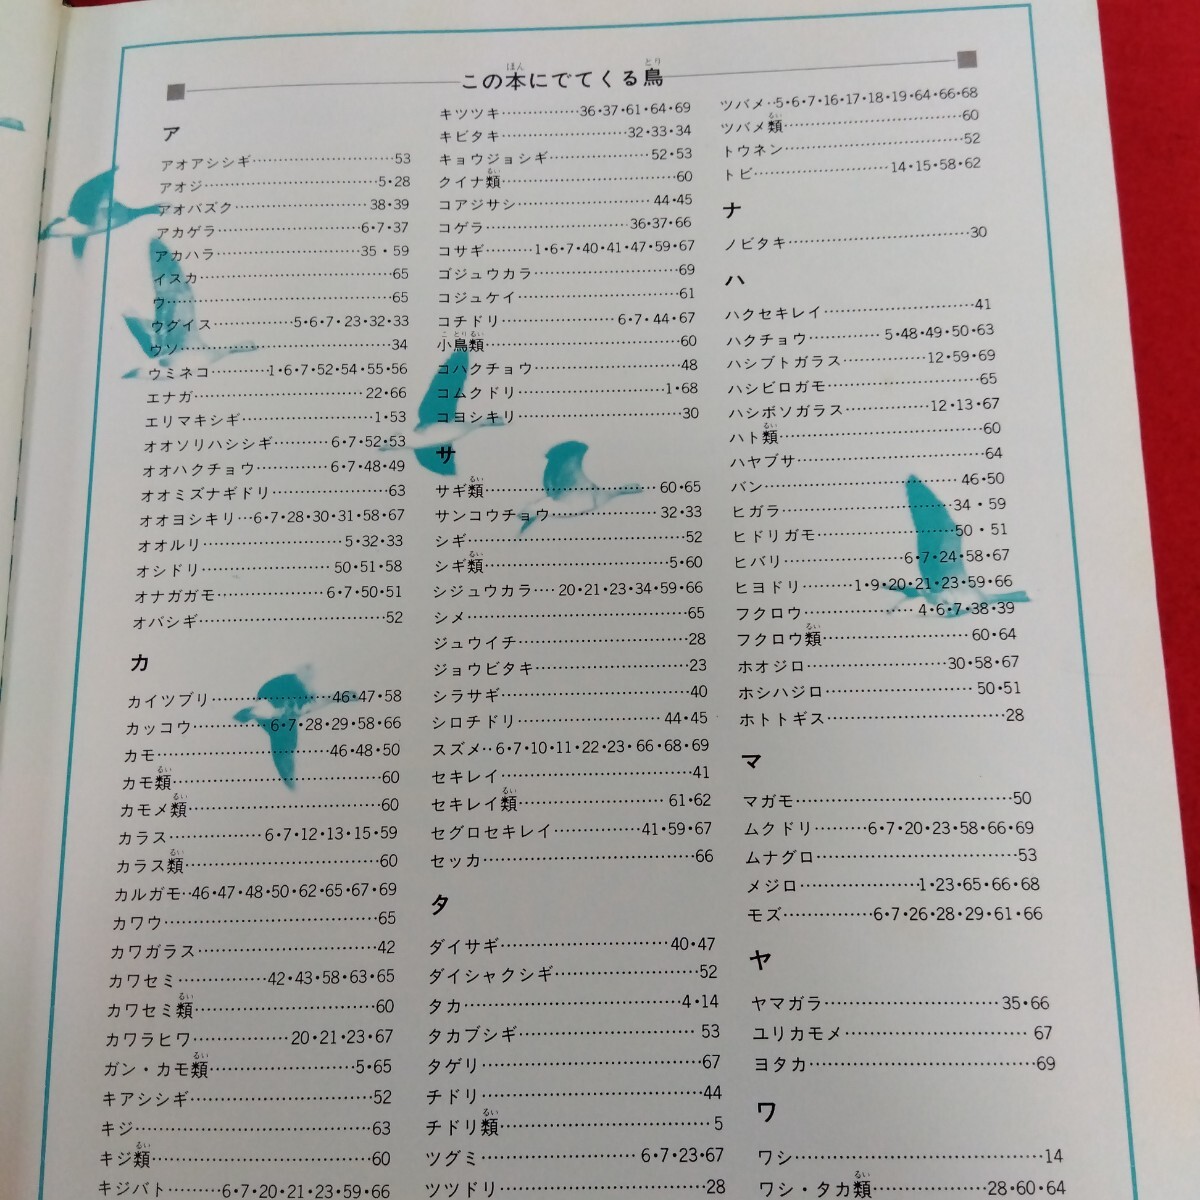 この本にでてくる鳥
ほん
とり
ア
アオアシシギ………53
アオジ………5・28
アオバズク………38・39
アカゲラ………6・7・37
アカハラ………35・59
イスカ………65
ウ………65
ウグイス………5・6・7・23・32・33
ウソ………34
ウミネコ………1・6・7・52・54・55・56
エナガ………22・66
エリマキシギ………1・53
オオソリハシシギ………6・7・52・53
オオハクチョウ………6・7・48・49
オオミズナギドリ………63
オオヨシキリ…6・7・28・30・31・58・67
オオルリ………5・32・33
オシドリ………50・51・58
オナガガモ………6・7・50・51
オバシギ………52
カ
カイツブリ………46・47・58
カッコウ………6・7・28・29・58・66
カモ………46・48・50
カモ類………60
カモメ類………60
カラス………6・7・12・13・15・59
カラス類………60
カルガモ‥46・47・48・50・62・65・67・69
カワウ………65
カワガラス………42
カワセミ………42・43・58・63・65
カワセミ類………60
カワラヒワ………20・21・23・67
ガン・カモ類………5・65
キアシシギ………52
キジ………63
キジ類………60
キジバト………6・7・20・21・23・59・66
キツツキ………36・37・61・64・69
キビタキ………32・33・34
キョウジョシギ………52・53
クイナ類………60
コアジサシ………44・45
コゲラ………36・37・66
コサギ………1・6・7・40・41・47・59・67
ゴジュウカラ………69
コジュケイ………61
コチドリ………6・7・44・67
小鳥類………60
コハクチョウ………48
コムクドリ………1・68
コヨシキリ………30
サ
サギ類………60・65
サンコウチョウ………32・33
シギ………52
シギ類………5・60
シジュウカラ…‥20・21・23・34・59・66
シメ………65
ジュウイチ………28
ジョウビタキ………23
シラサギ………40
シロチドリ………44・45
スズメ‥6・7・10・11・22・23・66・68・69
セキレイ………41
セキレイ類………61・62
セグロセキレイ………41・59・67
セッカ………66
タ
ダイサギ………40・47
ダイシャクシギ………52
タカ………4・14
タカブシギ………53
タゲリ………67
チドリ………44
チドリ類………5
ツグミ………6・7・23・67
ツツドリ………28
ツバメ‥5・6・7・16・17・18・19・64・66・68
ツバメ類………60
トウネン………52
トビ………14・15・58・62
ナ
ノビタキ………30
ハ
ハクセキレイ………41
ハクチョウ………5・48・49・50・63
ハシブトガラス………12・59・69
ハシビロガモ………65
ハシボソガラス………12・13・67
ハト類………60
ハヤブサ………64
バン………46・50
ヒガラ………34・59
ヒドリガモ………50・51
ヒバリ………6・7・24・58・67
ヒヨドリ………1・9・20・21・23・59・66
フクロウ………4・6・7・38・39
フクロウ類………60・64
ホオジロ………30・58・67
ホシハジロ………50・51
ホトトギス………28
マ
マガモ………50
ムクドリ………6・7・20・23・58・66・69
ムナグロ………53
メジロ………1・23・65・66・68
モズ………6・7・26・28・29・61・66
ヤ
ヤマガラ………35・66
ユリカモメ………67
ヨタカ………69
ワ
ワシ………14
ワシ・タカ類………28・60・64